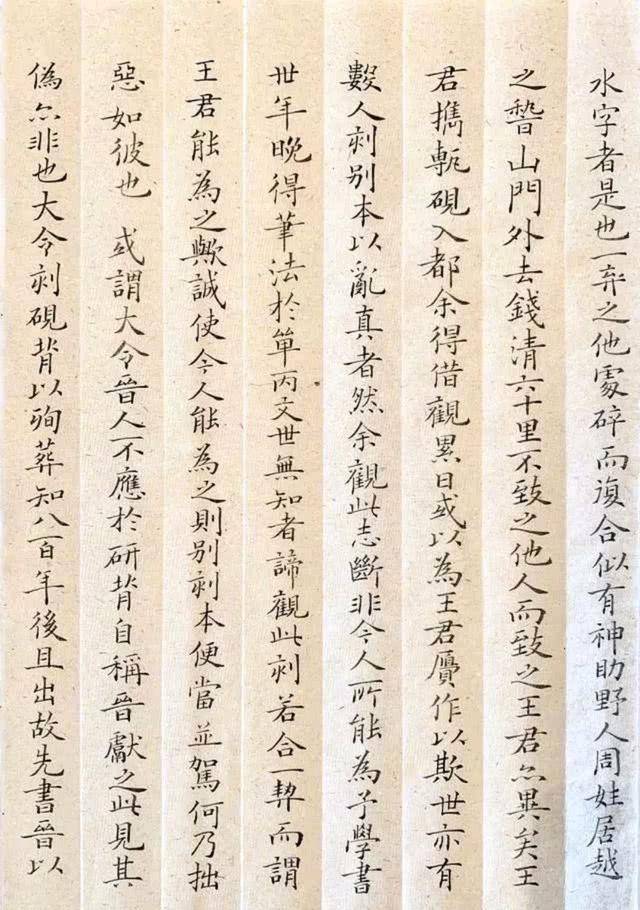 水字者是也一弃之他處碎而復合似有神助野人周姓居越
之暬山門外去錢清六十里不致之他人而致之王君亦異矣王
君攜甎硯入都余得借觀累日或以為王君贋作以欺世亦有
數人刻別本以亂真者然余觀此志斷非今人所能為予學書
卅年晚得筆法於單丙文世無知者諦觀此刻若合一契而謂
王君能為之歟誠使今人能為之則別刻本便當並駕何乃拙
惡如彼也 或謂大令晉人不應於研背自稱晉獻之此見其
偽亦非也大令刻硯背以殉葬知八百年後且出故先書晉以